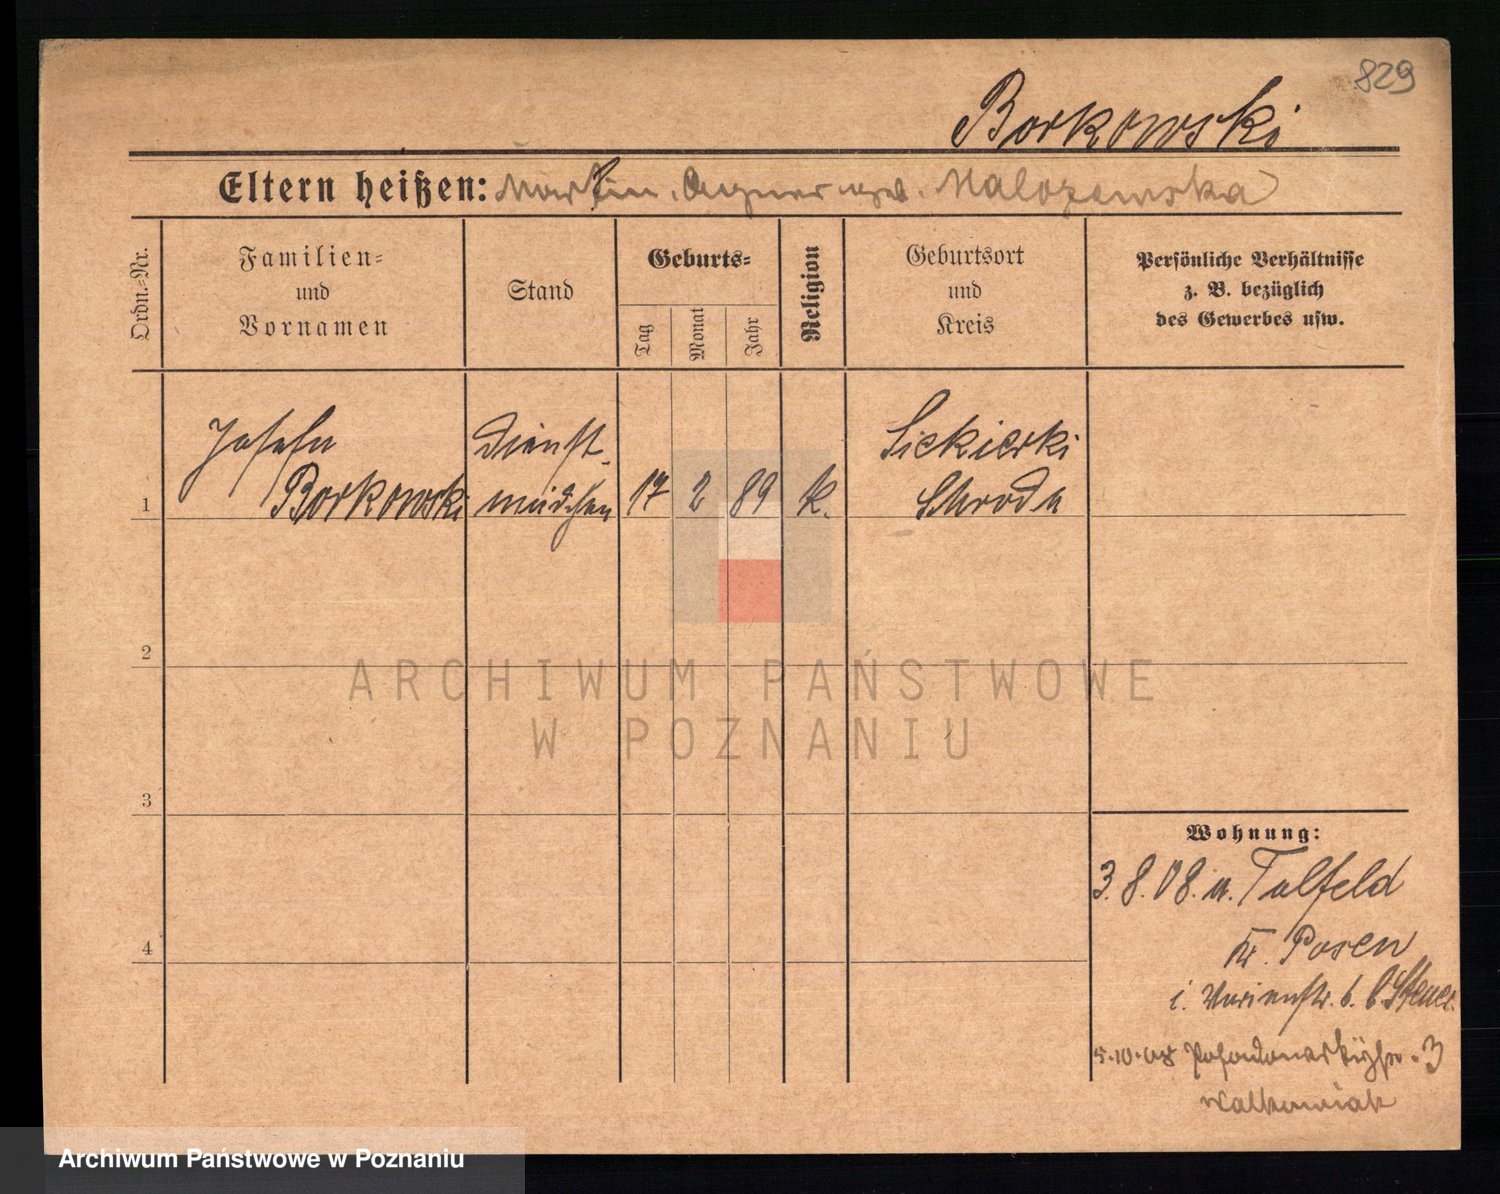 829
Borkowski
Eltern heißen: Martin, Agnes geb. Malozewska
Ordn.-Nr.
Familien-
und
Vornamen
Stand
Geburts-
Tag
Monat
Jahr
Religion
Geburtsort
und
Kreis
Persönliche Verhältnisse
z. B. bezüglich
des Gewerbes usw.
1
Josefa
Borkowski
Dienst-
mädchen
17
2
89
k.
Siekierki
Schroda
2
3
4
Wohnung:
3.8.08. n. Talfeld
Kr. Posen
5.10.08 3
Walkowiak
ARCHIWUM PAŃSTWOWE
W POZNANIU
Archiwum Państwowe w Poznaniu